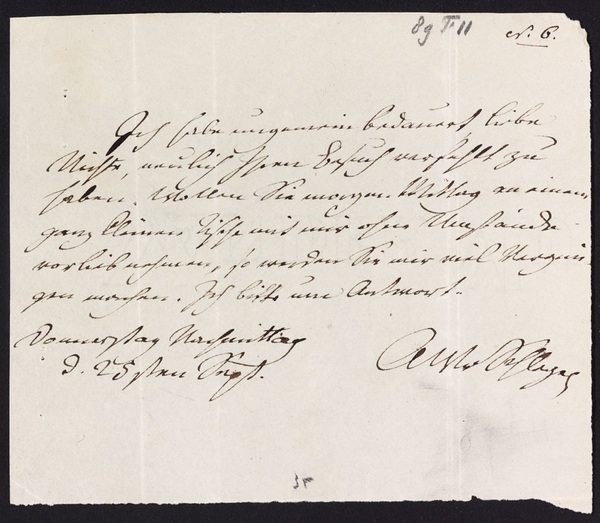 89 F 11
N. 6.
Ich habe ungemein bedauert, liebe
Nichte, neulich Ihren Besuch verfehlt zu
haben. Wollen Sie morgen Mittag an einem
ganz kleinen Tische mit mir ohne Umstände
vorlieb nehmen, so werden Sie mir viel Vergnü-
gen machen. Ich bitte um Antwort.
Donnerstag Nachmittag
d. 25sten Sept.
AWv Schlegel